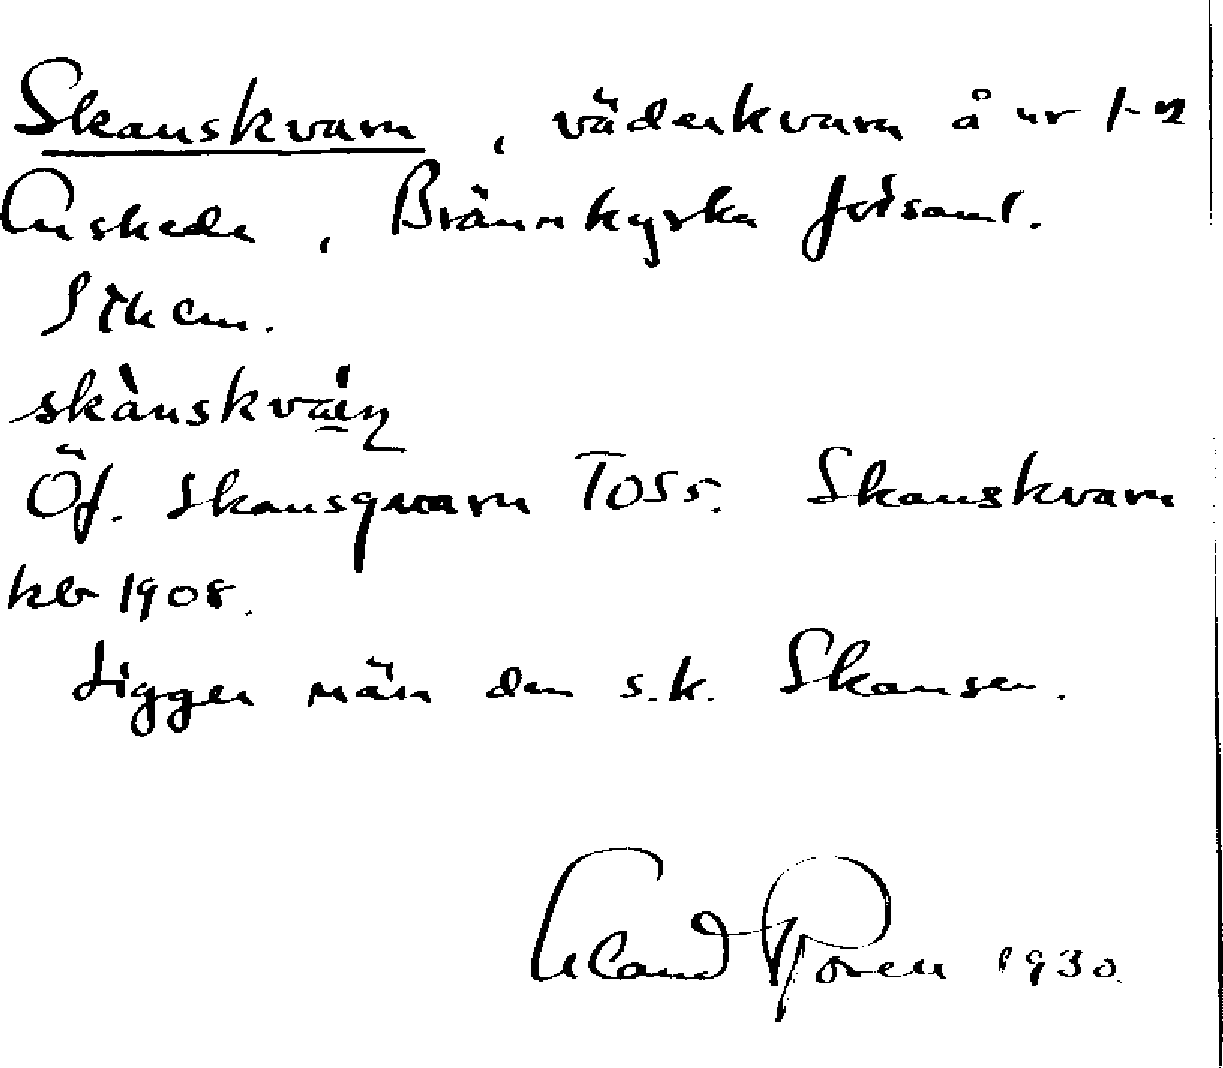 Skanskvarn, väderkvarn å nr 1-2
Enskede, Brännkyrka förs
Sthlm.
skànskvá̤rn
Öf. Skansqvarn Toss. Skanskvarn
kb 1908.
Ligger när den s.k. Skansen.
1930.